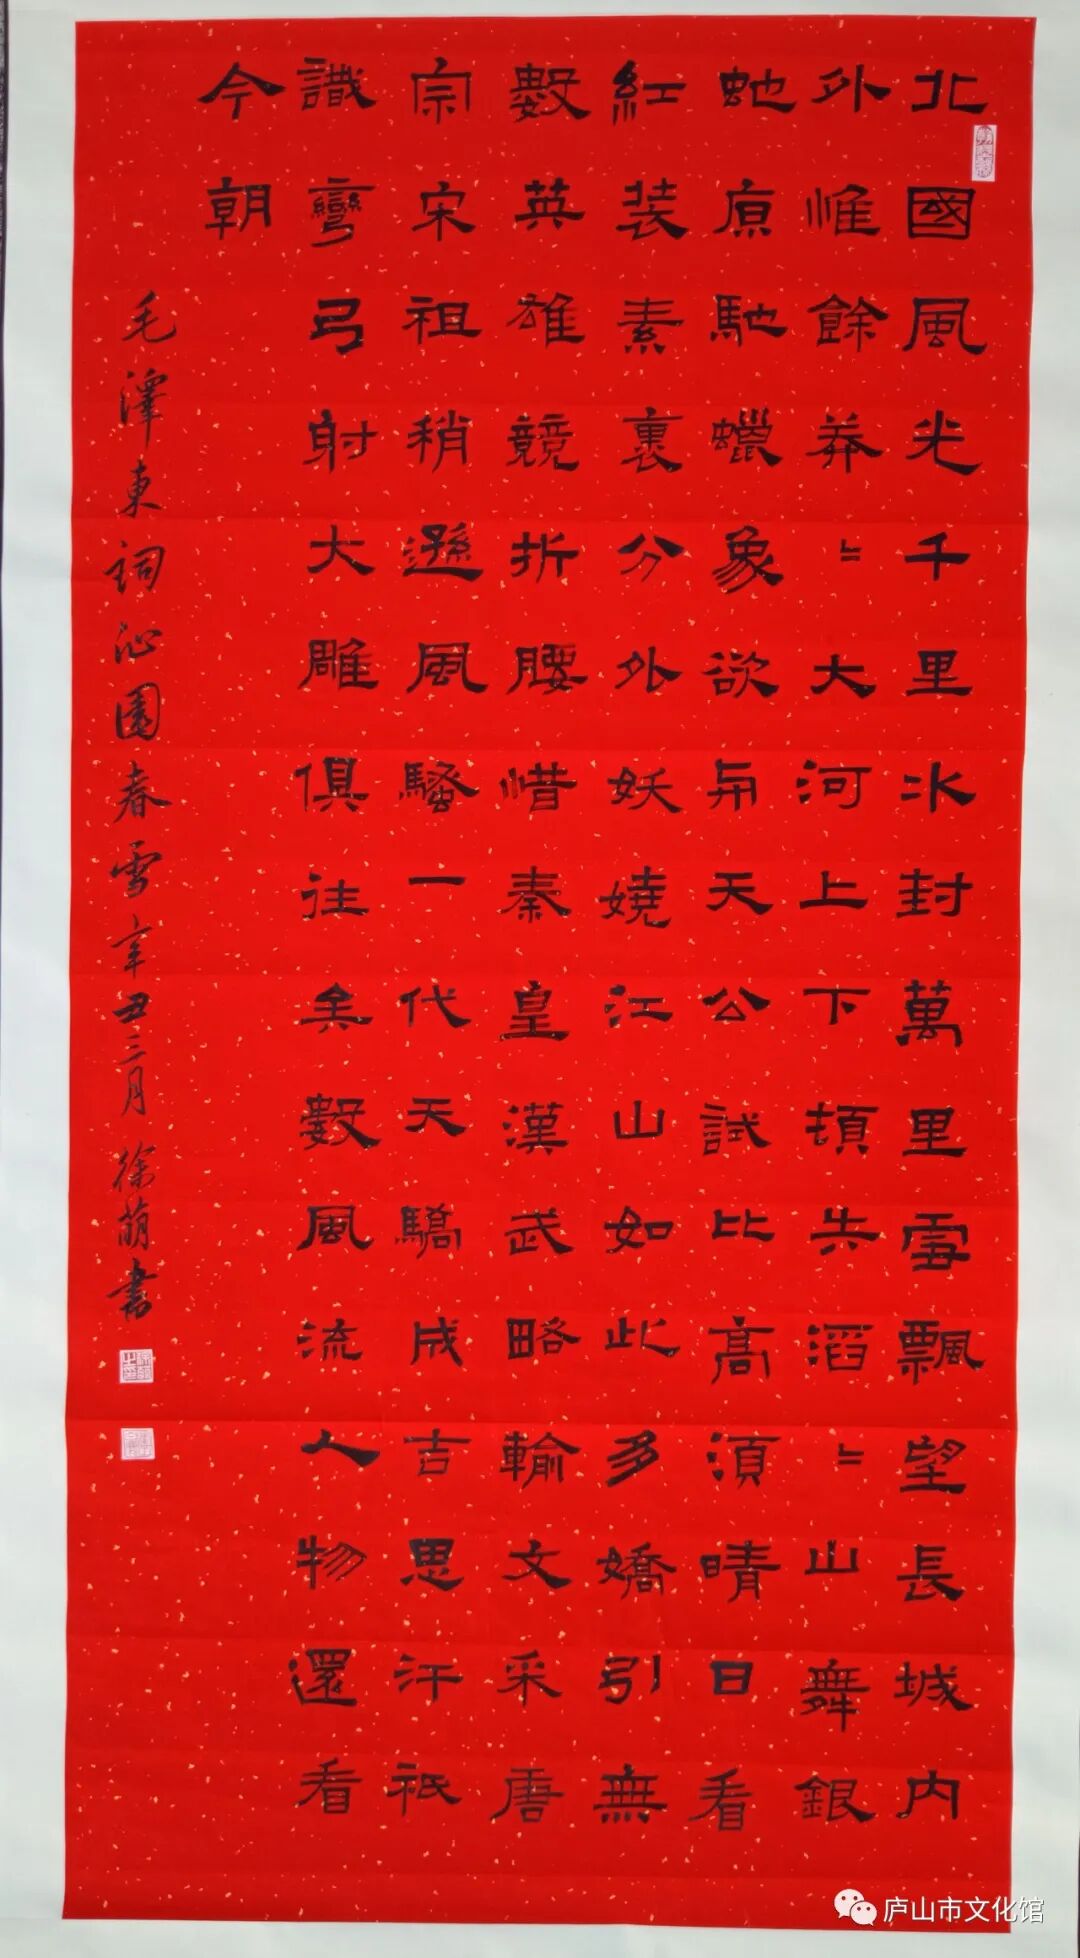 北國風光千里冰封萬里雪飄望長城内
外惟餘莽〻大河上下頓失滔〻山舞銀
蛇原馳蠟象欲与天公試比高須晴日看
紅装素裹分外妖嬈江山如此多嬌引無
數英雄競折腰惜秦皇漢武略輸文采唐
宗宋祖稍遜風騷一代天驕成吉思汗祇
識彎弓射大雕俱往矣數風流人物還看
今朝
毛澤東词沁園春雪辛丑三月徐萌書
庐山市文化馆